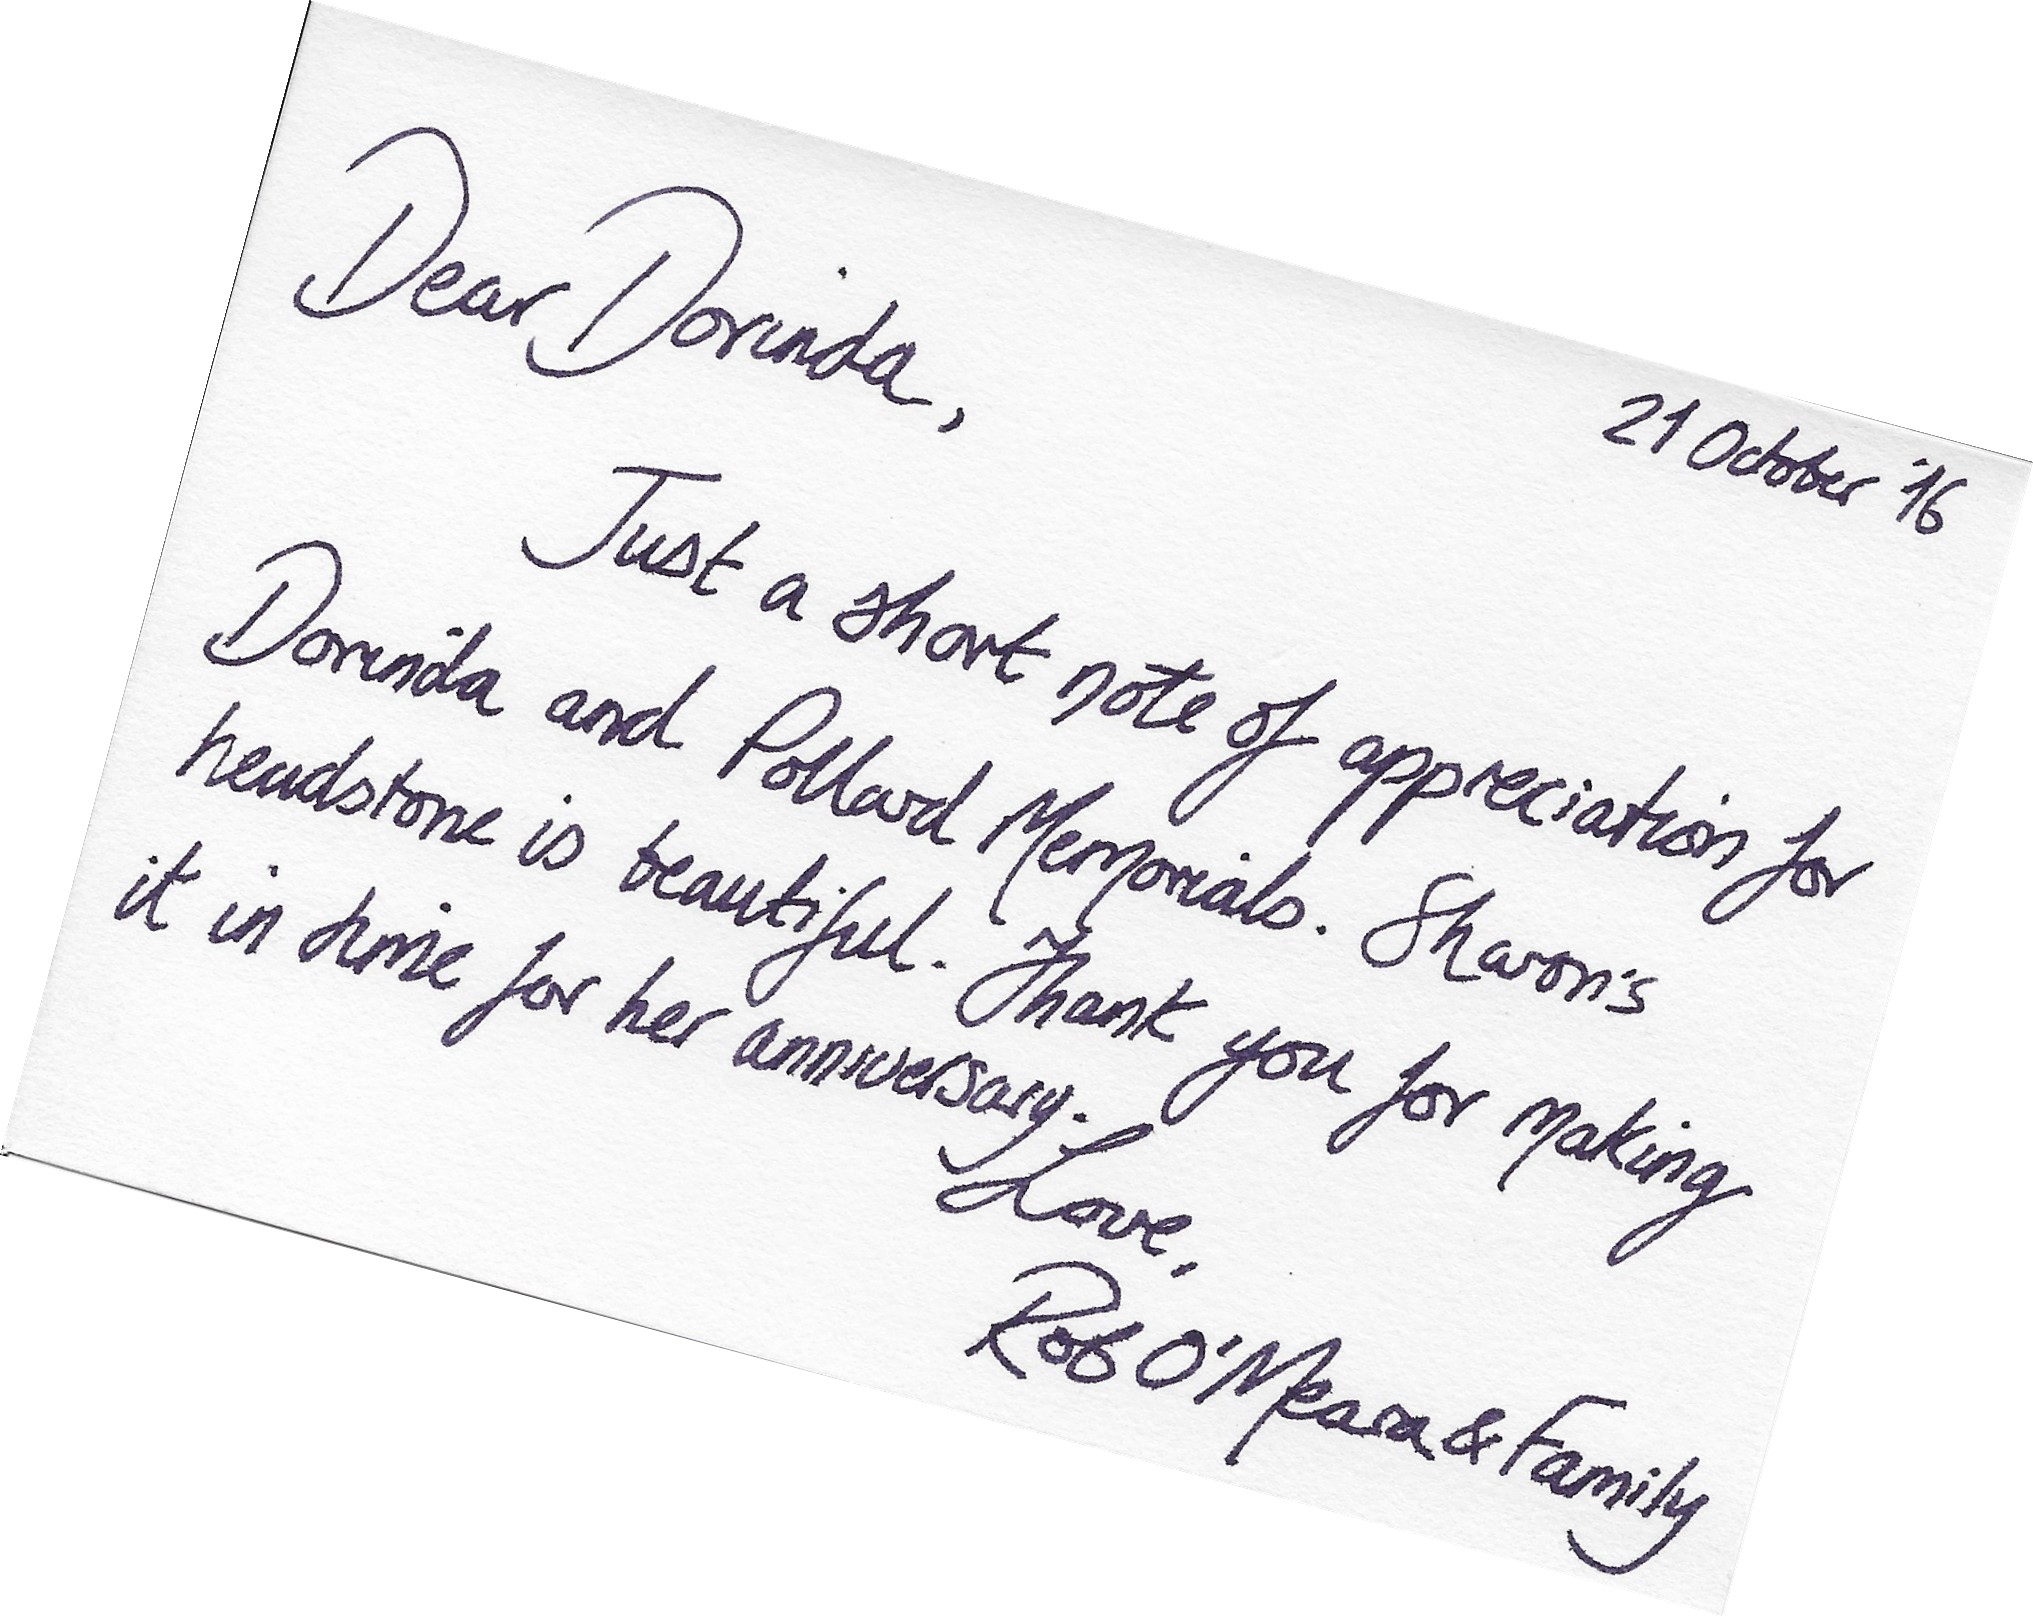 21 October '16
Dear Dorinda,
Just a short note of appreciation for
Dorinda and Pollard Memorials. Sharon's
headstone is beautiful. Thank you for making
it in time for her anniversary.
Love,
Rob O'Meara & Family